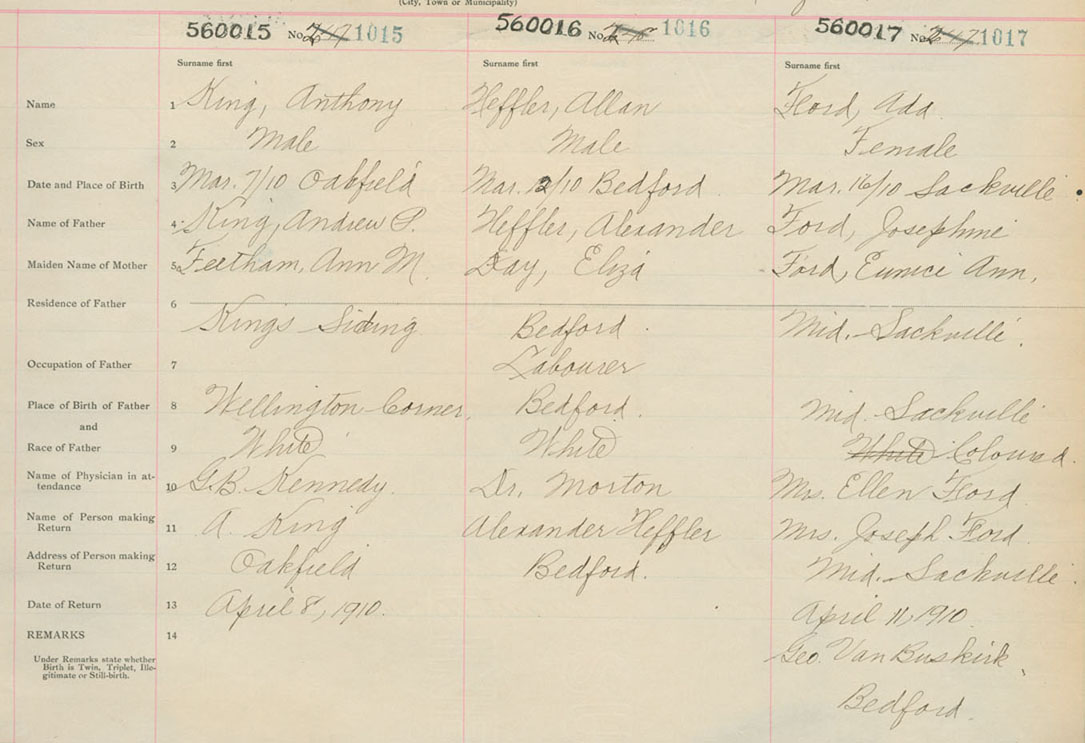 (City, Town or Municipality)
560015 No. 1015 560016 No. 1016 560017 No. 1017
Surname first Surname first Surname first
Name 1 King, Anthony Heffler, Allan Ford, Ada
Sex 2 Male Male Female
Date and Place of Birth 3 Mar. 7/10 Oakfield Mar. 12/10 Bedford Mar. 16/10 Sackville.
Name of Father 4 King, Andrew P. Heffler, Alexander Ford, Josephine
Maiden Name of Mother 5 Feetham, Ann M. Day, Eliza Ford, Eunice Ann,
Residence of Father 6
Kings Siding Bedford. Mid. Sackville.
Occupation of Father 7 Labourer
Place of Birth of Father 8 Wellington Corner, Bedford. Mid. Sackville
and
Race of Father 9 White White White Coloured.
Name of Physician in at-
tendance 10 G.B. Kennedy. Dr. Morton Mrs. Ellen Ford
Name of Person making
Return 11 A. King Alexander Heffler Mrs. Joseph Ford
Address of Person making
Return 12 Oakfield Bedford. Mid. Sackville.
Date of Return 13 April 8, 1910. April 11, 1910
REMARKS 14
Under Remarks state whether
Birth is Twin, Triplet, Ille-
gitimate or Still-birth.
Geo. Van Buskirk,
Bedford.